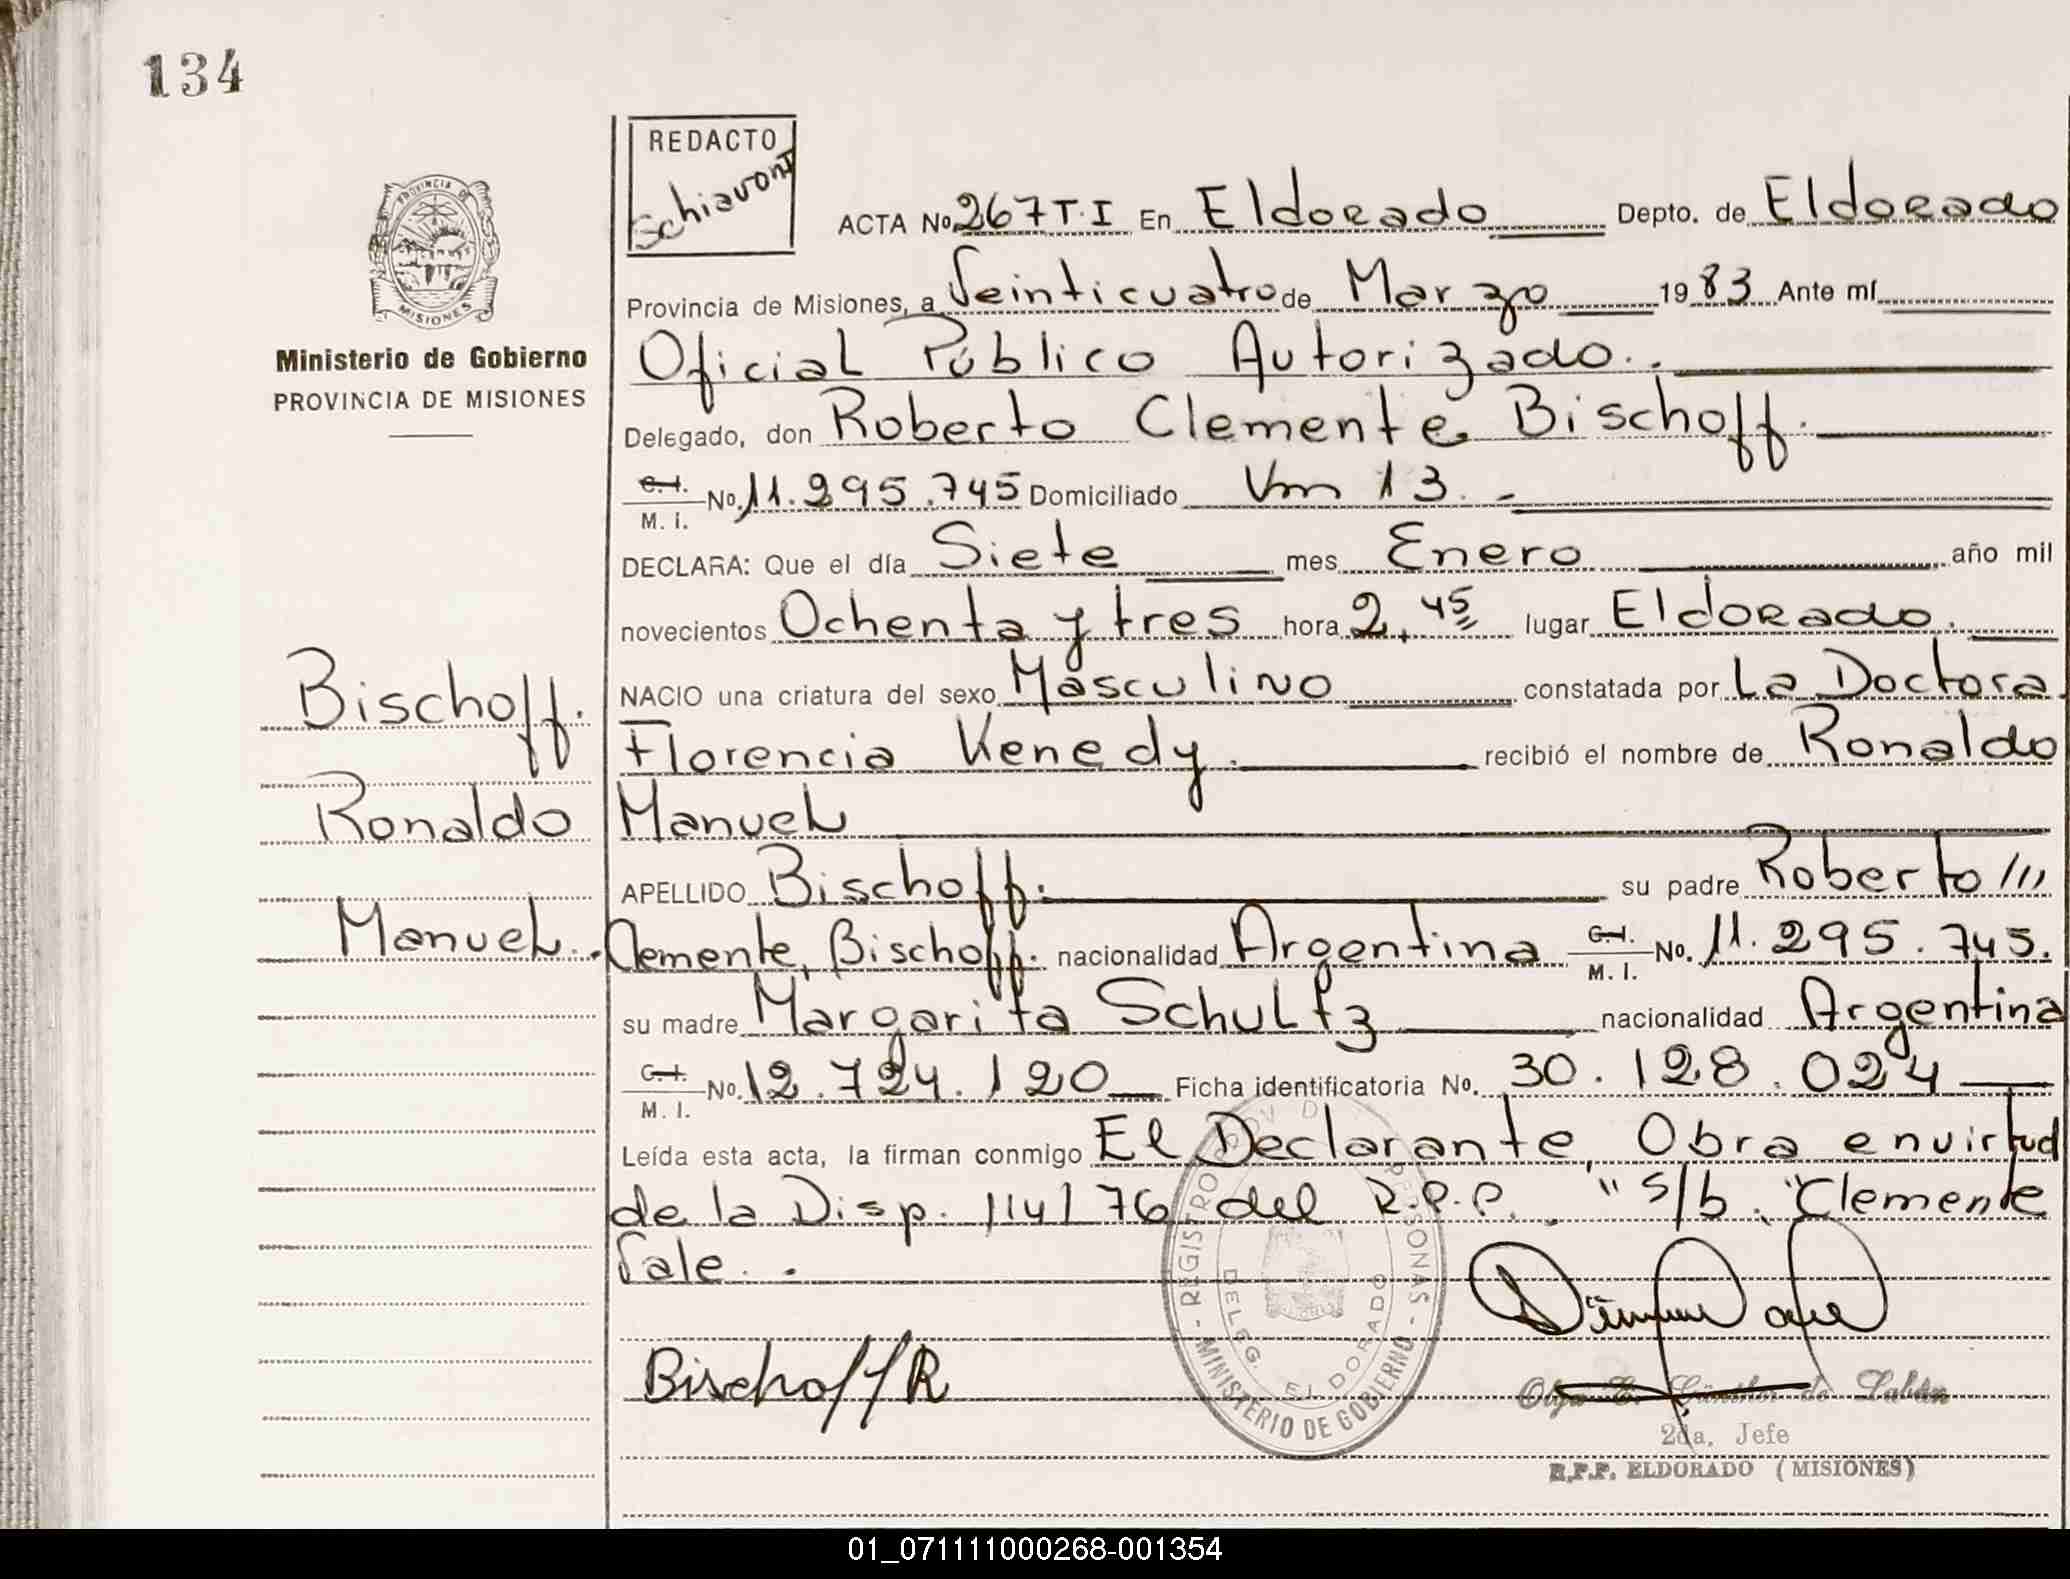 134
REDACTO
Schiavoni
PROVINCIA DE
MISIONES
Ministerio de Gobierno
PROVINCIA DE MISIONES
ACTA No. 267 T.I En Eldorado Depto. de Eldorado
Provincia de Misiones, a Veinticuatro de Marzo 1983 Ante mí
Oficial Público Autorizado.
Delegado, don Roberto Clemente Bischoff.
C.I. M.I. No. 11.295.745 Domiciliado Km 13.-
DECLARA: Que el día Siete mes Enero año mil
novecientos Ochenta y tres hora 2,45 lugar Eldorado.
NACIO una criatura del sexo Masculino constatada por La Doctora
Florencia Kenedy. recibió el nombre de Ronaldo
Manuel
APELLIDO Bischoff. su padre Roberto ///
Clemente, Bischoff. nacionalidad Argentina C.I. M.I. No. 11.295.745.
su madre Margarita Schultz nacionalidad Argentina
C.I. M.I. No. 12.724.120 Ficha identificatoria No. 30.128.024
Leída esta acta, la firman conmigo El Declarante, Obra envirtud
de la Disp. 114/76 del R.P.P. " s/b. "Clemente
Vale..
Bischoff.
Ronaldo
Manuel.
Bischoff R
REGISTRO PROV. DE PERSONAS
DELEG. ELDORADO
- MINISTERIO DE GOBIERNO -
Olga E. Günther de
2da. Jefe
R.P.P. ELDORADO (MISIONES)
01_071111000268-001354